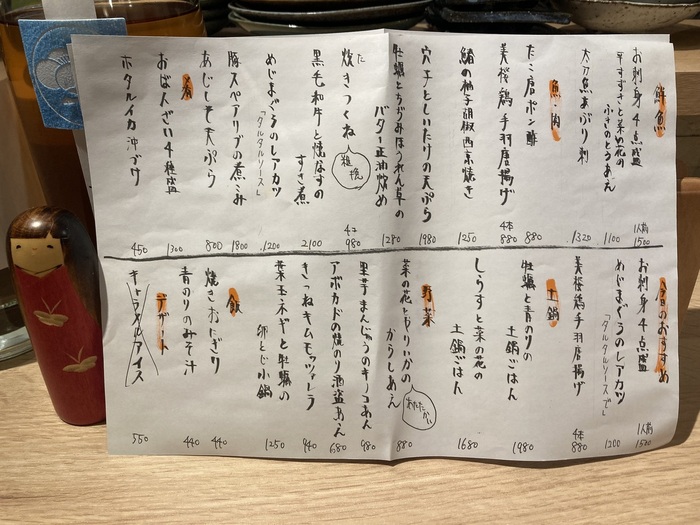 鮮魚
お刺身4点盛
1人前
1500
平すずきと菜の花の
ふきのとうあえ
1100
太刀魚あぶり刺
1320
魚・肉
たこ唐ポン酢
880
美桜鶏手羽唐揚げ
4本
880
鰆の柚子胡椒西京焼き
1250
穴子としいたけの天ぷら
1980
牡蠣とちぢみほうれん草の
バター正油炒め
1280
焼きつくね
4コ
980
黒毛和牛と焼なすの
すき煮
2100
めじまぐろのレアカツ
「タルタルソース」
1200
豚スペアリブの煮こみ
1800
あじしそ天ぷら
800
おばんざい4種盛
1300
ホタルイカ沖づけ
450
今日のおすすめ
お刺身4点盛
1人前
1500
めじまぐろのレアカツ
「タルタルソースで」
1200
美桜鶏手羽唐揚げ
4本
880
土鍋
牡蠣と青のりの
土鍋ごはん
1980
しらすと菜の花の
土鍋ごはん
1680
野菜
菜の花とやりいかの
からしあえ
あたたかい
880
里芋まんじゅうのキノコあん
980
アボカドの焼のり酒盗あえ
680
きつねキムモッツァレラ
940
葉玉ネギと牡蠣の
卵とじ小鍋
1250
飯
焼きおにぎり
440
青のりのみそ汁
440
デザート
キャラメルアイス
550